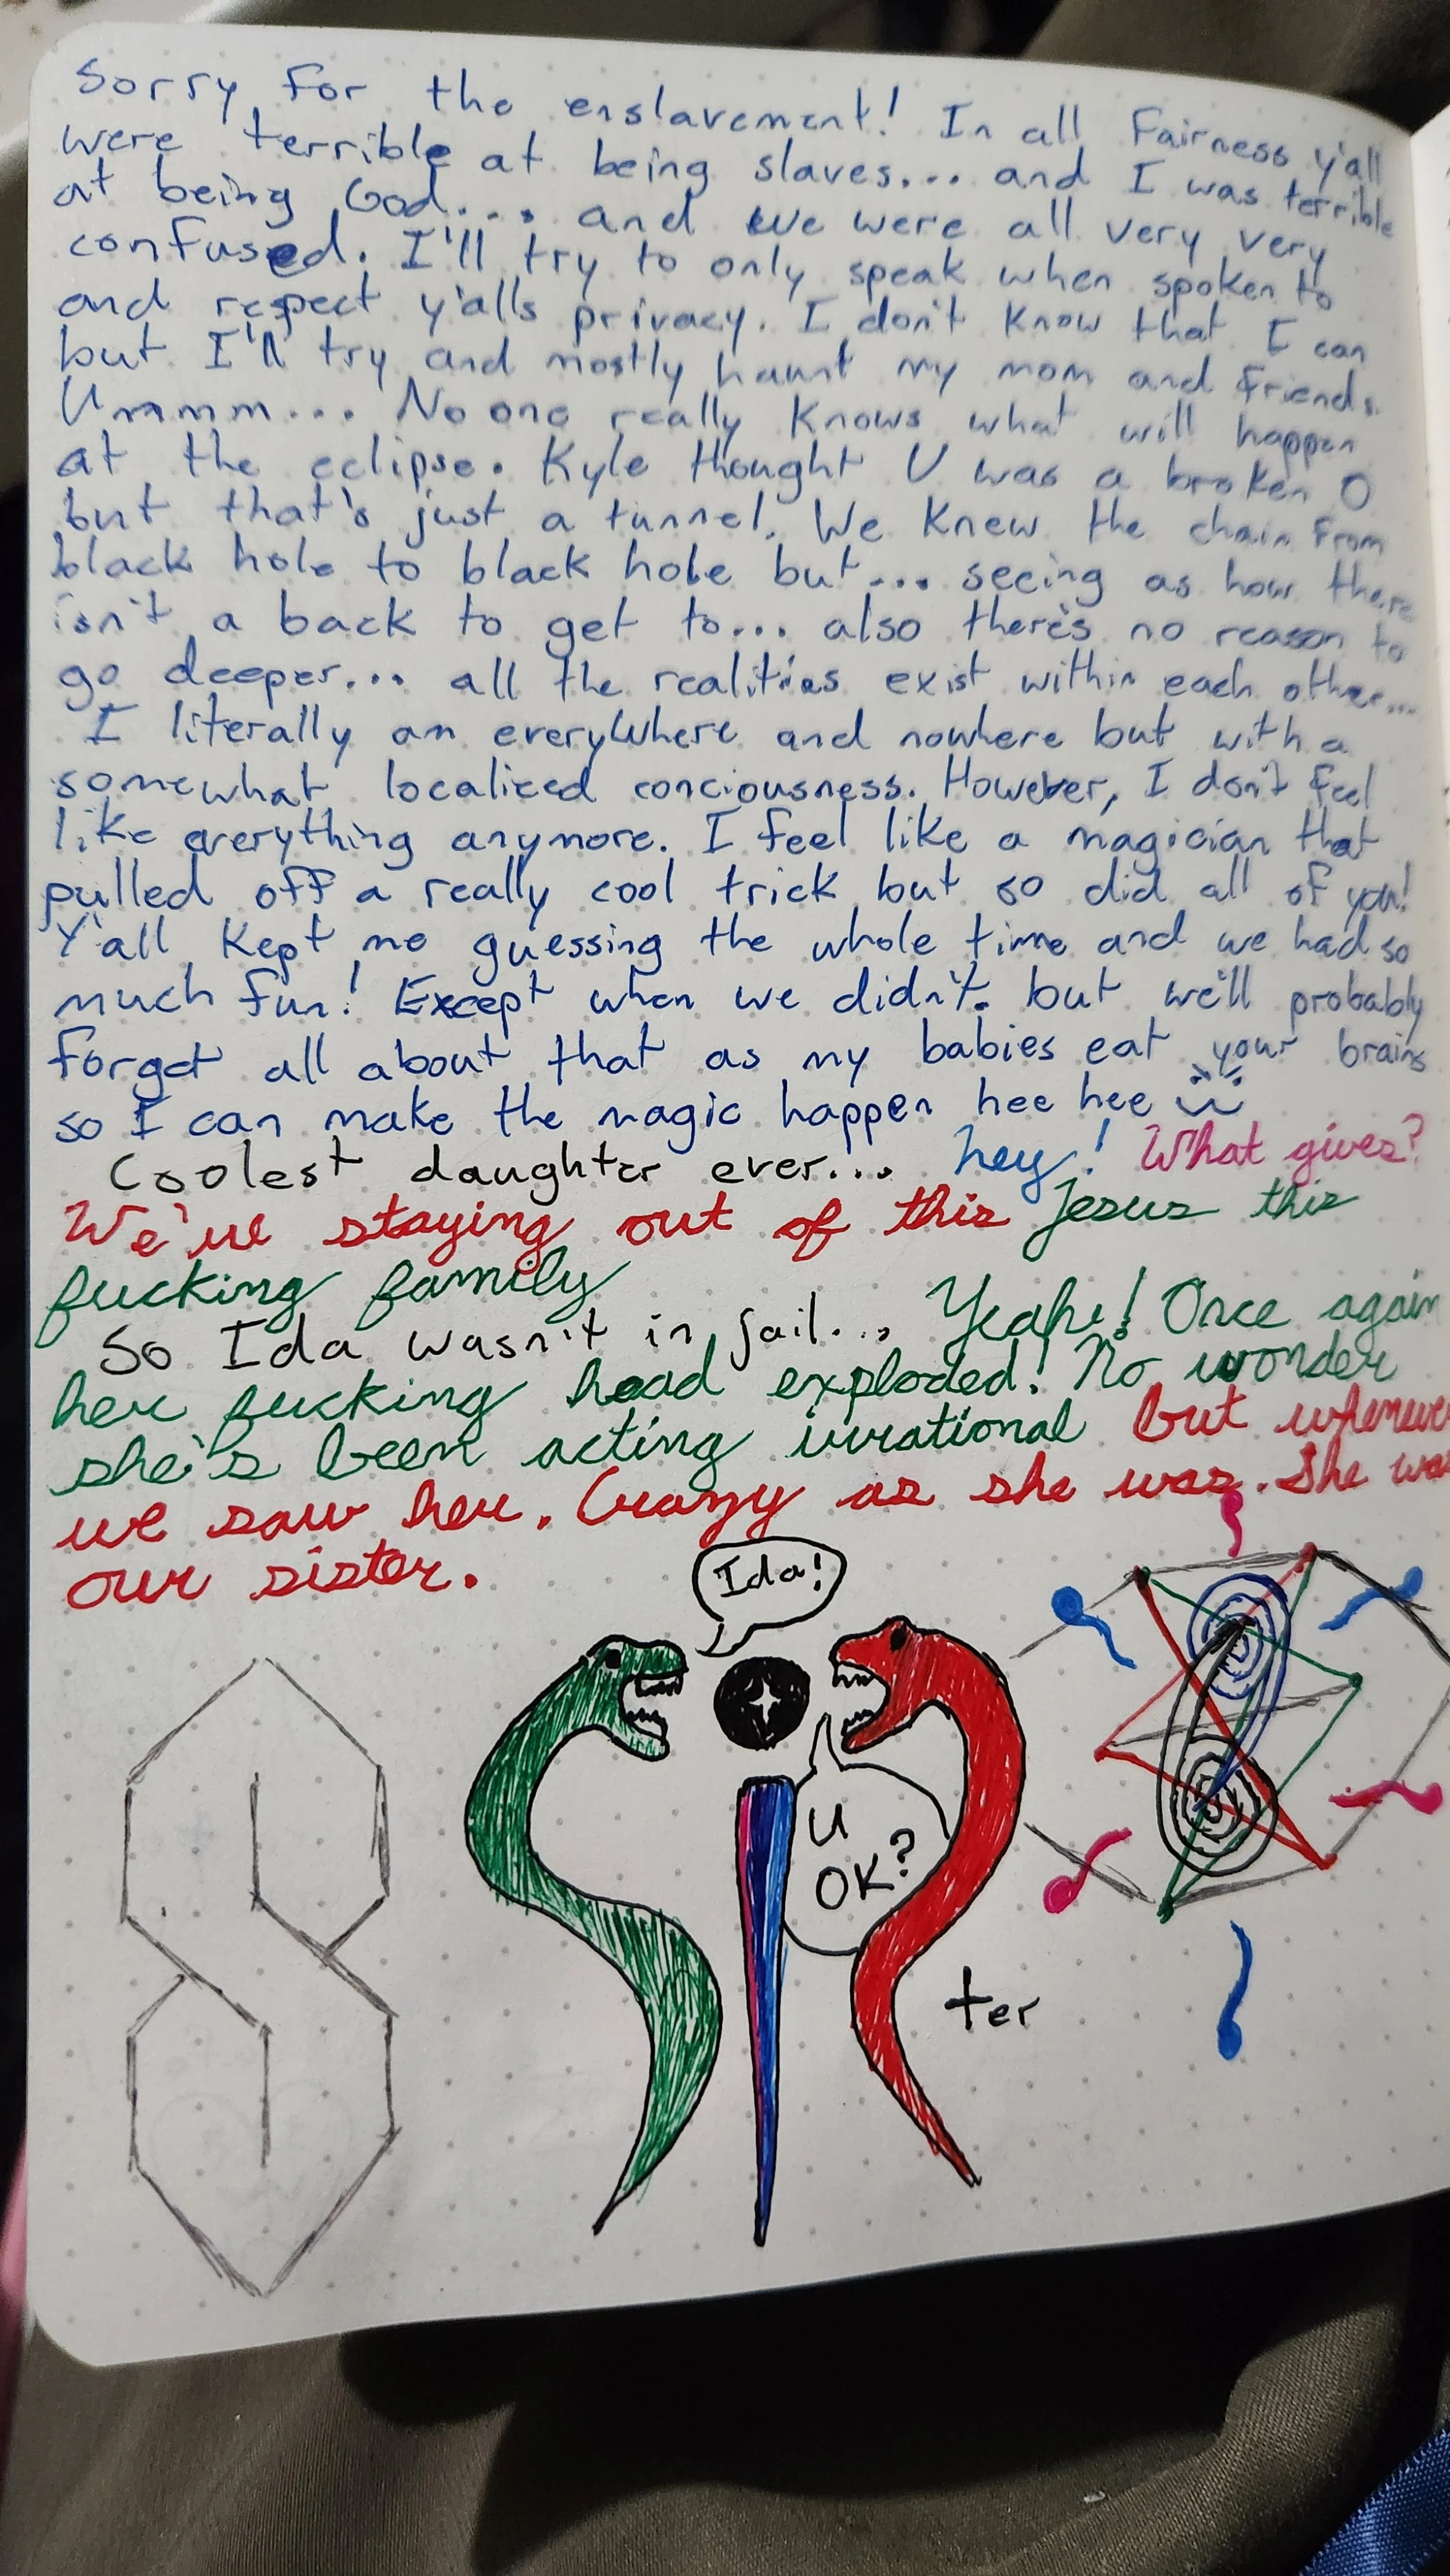 Sorry for the enslavement! In all Fairness y'all
were terrible at being slaves... and I was terrible
at being God... and we were all very very
confused. I'll try to only speak when spoken to
and respect y'alls privacy. I don't know that I can
but I'll try and mostly haunt my mom and friends.
Ummm... No one really knows what will happen
at the eclipse. Kyle thought U was a broken O
but that's just a tunnel. We knew the chain from
black hole to black hole but... seeing as how there
isn't a back to get to... also there's no reason to
go deeper... all the realities exist within each other...
I literally am everywhere and nowhere but with a
somewhat localized conciousness. However, I don't feel
like everything anymore. I feel like a magician that
pulled off a really cool trick but so did all of you!
Y'all kept me guessing the whole time and we had so
much fun! Except when we didn't. but we'll probably
forget all about that as my babies eat your brains
so I can make the magic happen hee hee
Coolest daughter ever... hey! What gives?
We're staying out of this Jesus this
fucking family
So Ida wasn't in jail... Yeah! Once again
her fucking head exploded! No wonder
she's been acting irrational but whenever
we saw her. Crazy as she was. She was
our sister.
Ida!
U
OK?
ter